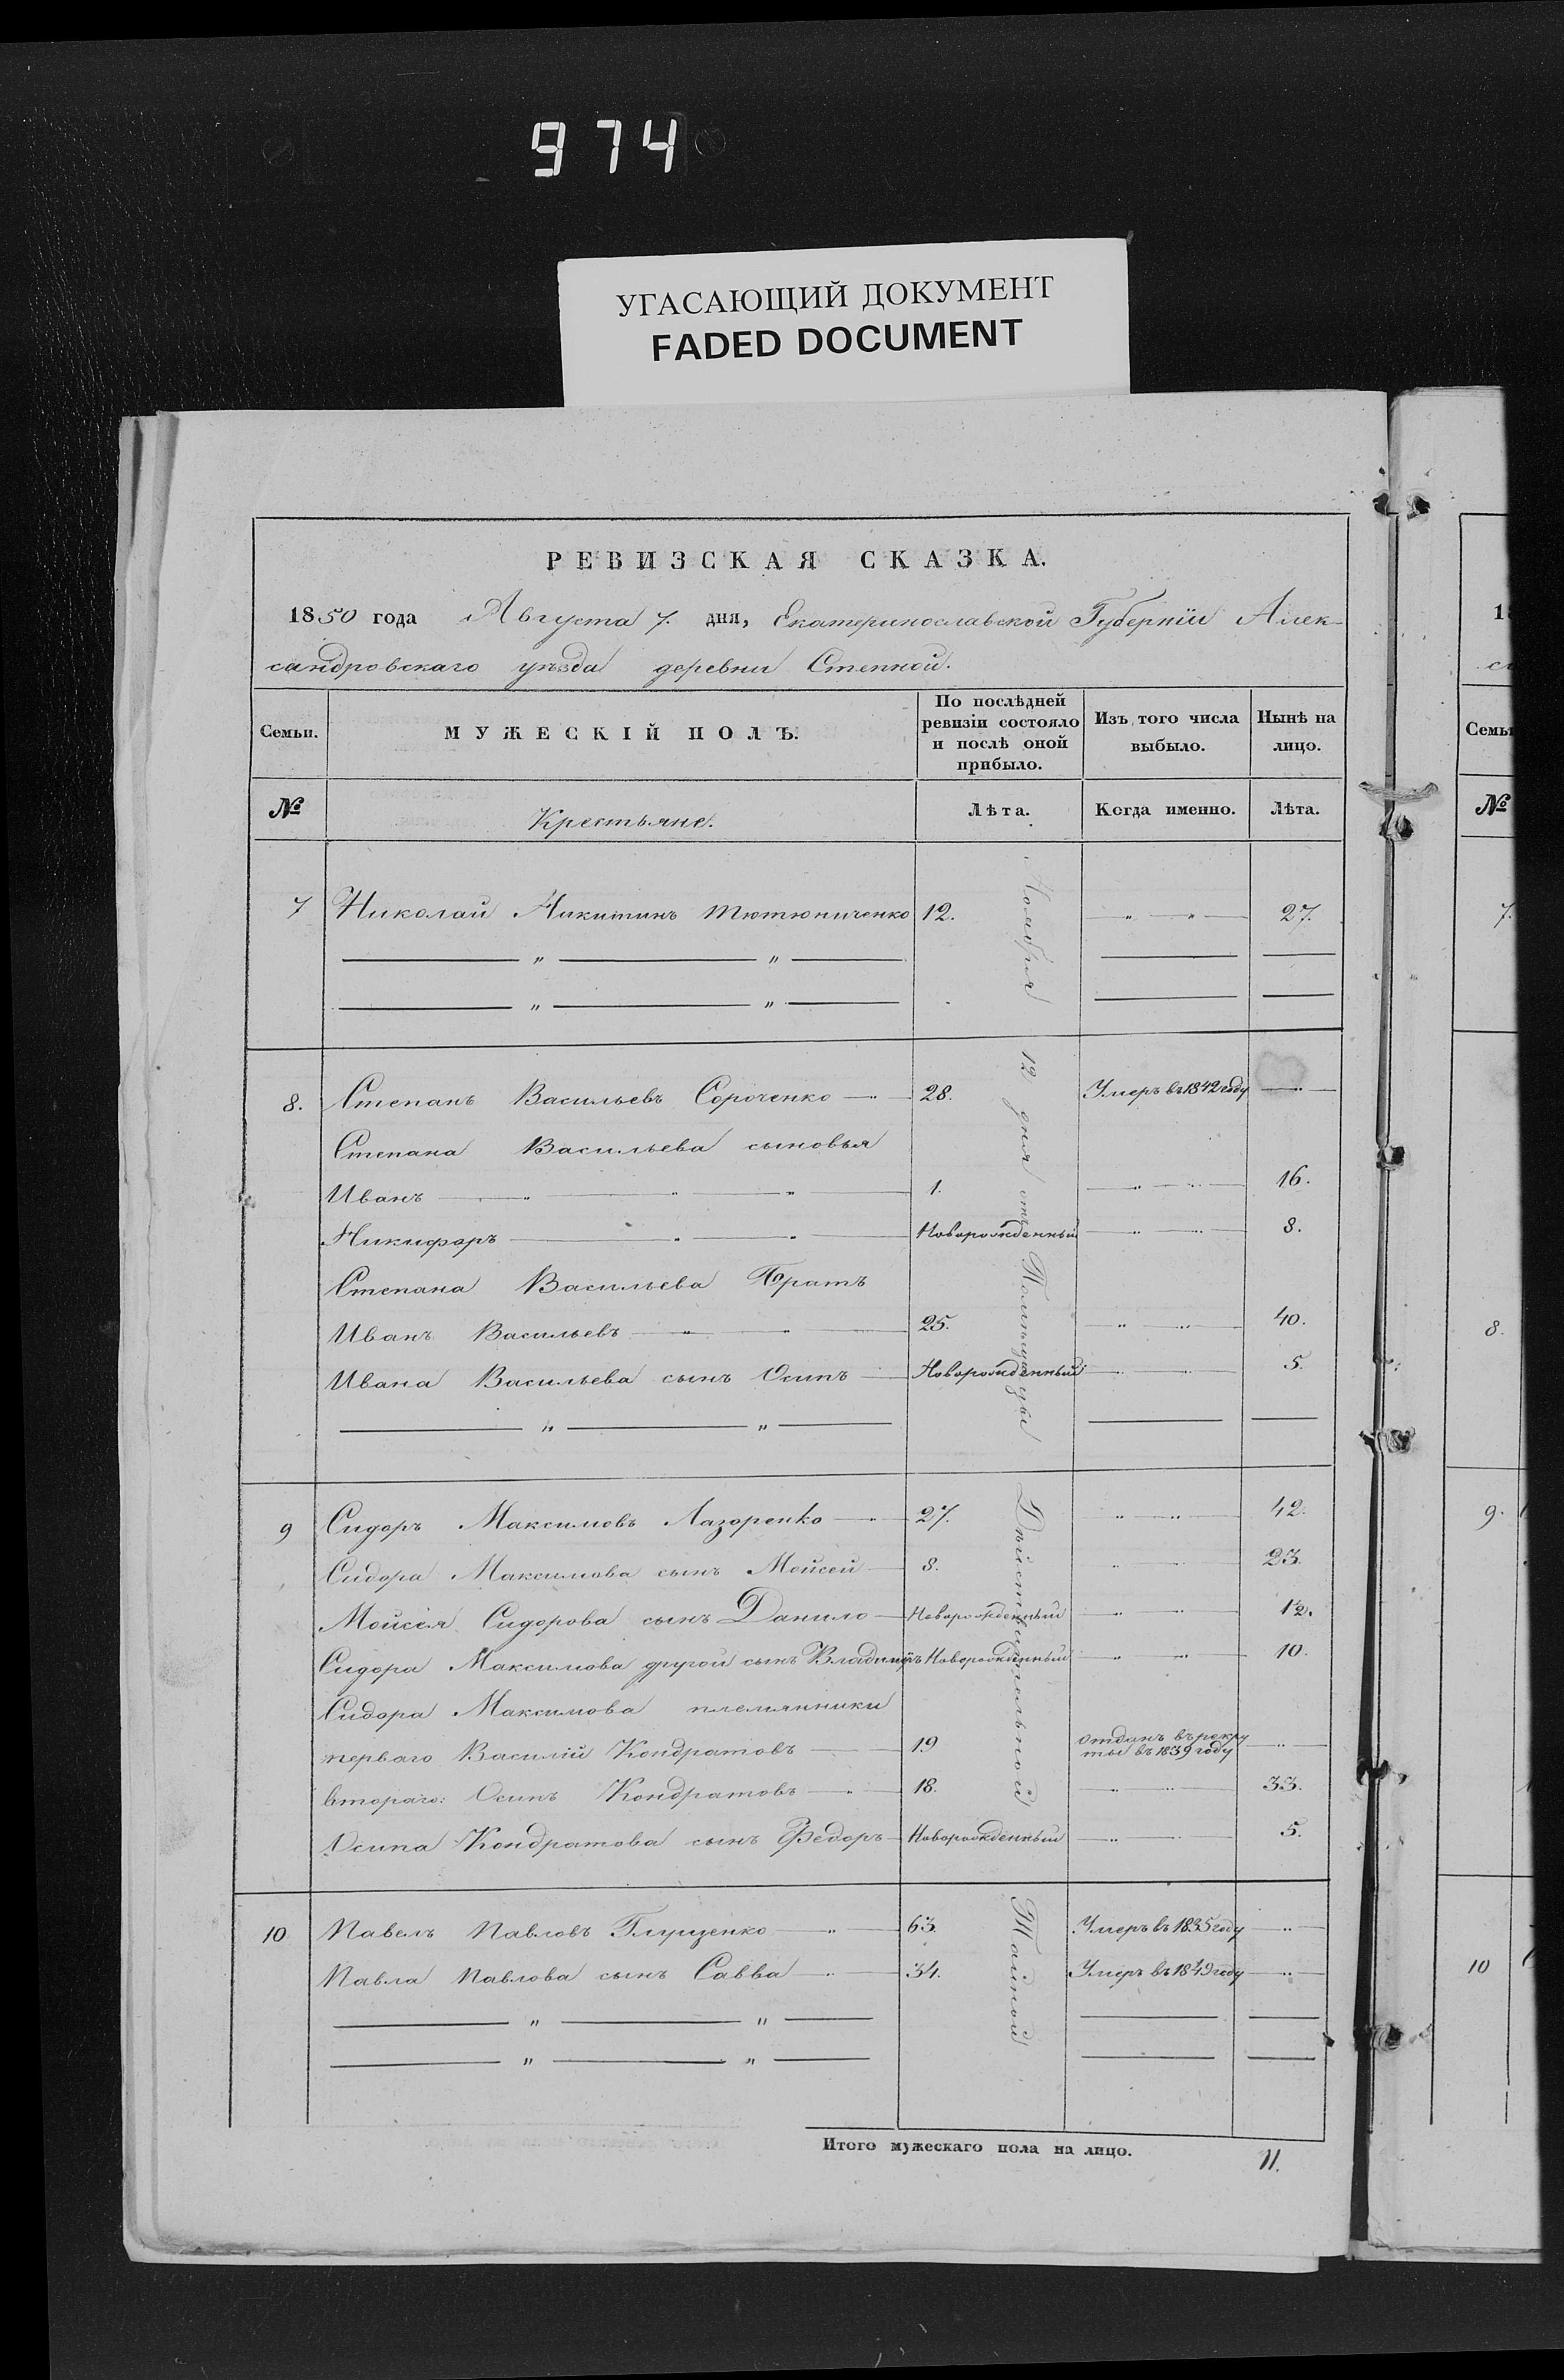 974
УГАСАЮЩИЙ ДОКУМЕНТ
FADED DOCUMENT
РЕВИЗСКАЯ СКАЗКА.
1850 года Августа 7. дня, Екатеринославской Губерніи Алек-
сандровскаго уѣзда деревни Степной.
Семьи. МУЖЕСКІЙ ПОЛЪ. По послѣдней ревизіи состояло и послѣ оной прибыло. Изъ того числа выбыло. Нынѣ на лицо.
№ Крестьяне. Лѣта. Когда именно. Лѣта.
7 Николай Никитинъ Тютюниченко 12. " " 27.
" "
" "
8. Степанъ Васильевъ Сороченко 28. Умеръ въ 1842 году "
Степана Васильева сыновья
Иванъ " " " 1. " " 16.
Никифоръ " " " Новорожденный " " 8.
Степана Васильева Братъ
Иванъ Васильевъ " " 25. " " 40.
Ивана Васильева сынъ Осипъ Новорожденный " " 5.
" "
9 Сидоръ Максимовъ Лазоренко " 27. " " 42.
Сидора Максимова сынъ Мойсей 8. " " 23.
Мойсея Сидорова сынъ Данило Новорожденный " " 12.
Сидора Максимова другой сынъ Владимiръ Новорожденный " " 10.
Сидора Максимова племянники
перваго Василій Кондратовъ 19 отданъ въ рекру
ты въ 1839 году "
втораго: Осипъ Кондратовъ " 18. " " 33.
Осипа Кондратова сынъ Федоръ Новорожденный " " 5.
10 Павелъ Павловъ Глущенко " 63. Умеръ въ 1835 году "
Павла Павлова сынъ Савва " 34. Умеръ въ 1849 году "
" "
" "
Ноября 12 дня отъ Действительной Тайной
Итого мужескаго пола на лицо. 11.
Семьи
№
7.
8.
9.
10